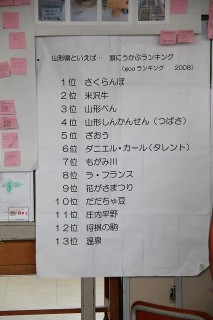 山形県といえば… 頭にうかぶランキング
(gooランキング 2008)
1位 さくらんぼ
2位 米沢牛
3位 山形べん
4位 山形しんかんせん(つばさ)
5位 ざおう
6位 ダニエル・カール(タレント)
7位 もがみ川
8位 ラ・フランス
9位 花がさまつり
10位 だだちゃ豆
11位 庄内平野
12位 将棋の駒
13位 温泉